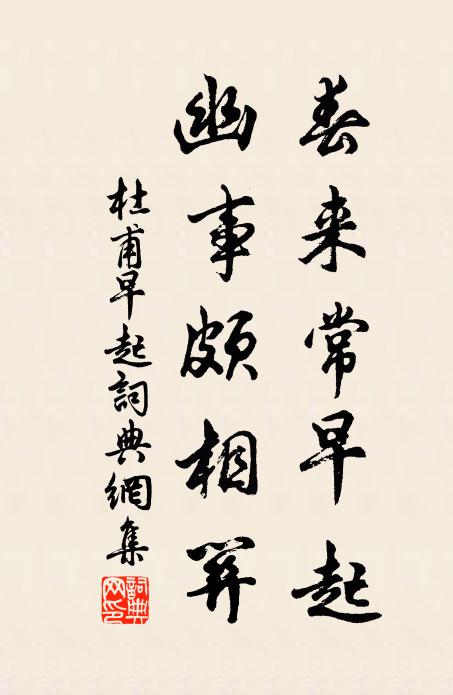 春来常早起
幽事頗相關
杜甫早起詞典網集
詞典网印